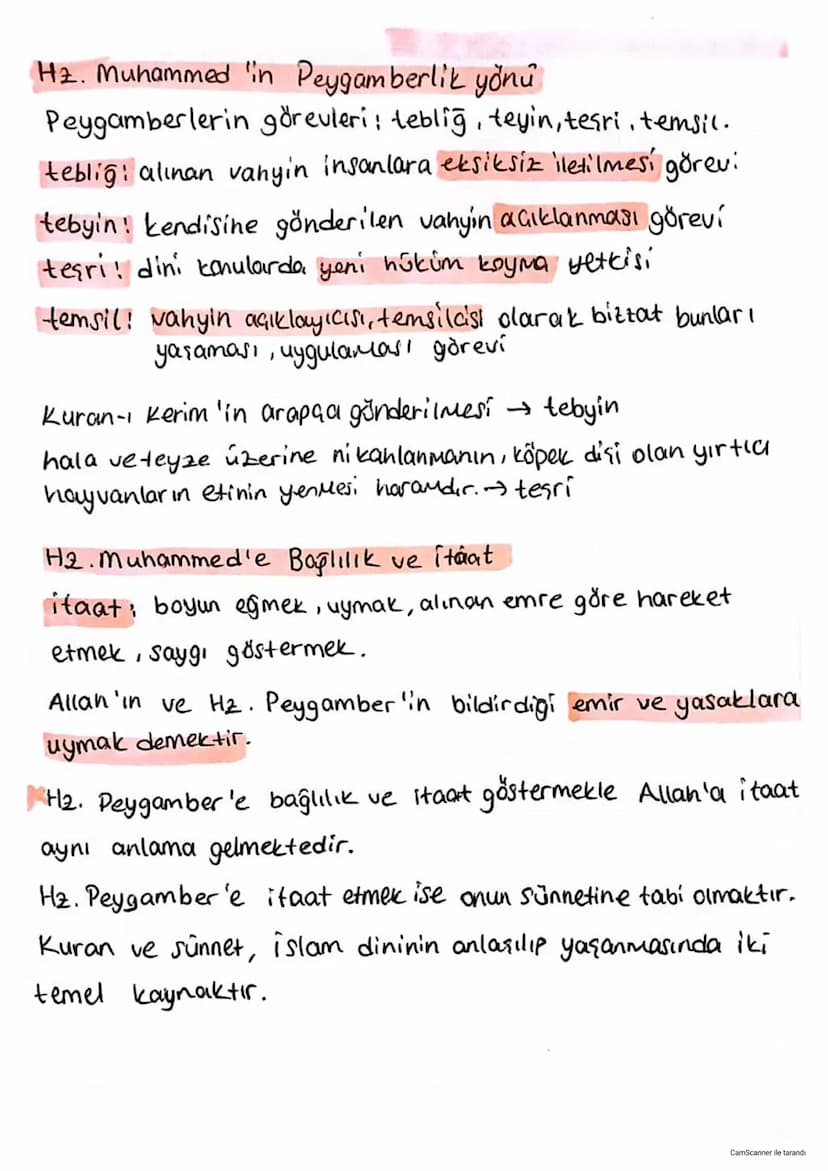 Hz. Muhammed 'in Peygamberlik yönü
Peygamberlerin görevleri; tebliğ, teyin, teşri, temsil.
tebliğ: alınan vahyin insanlara eksiksiz iletilmesi görevi
tebyin: kendisine gönderilen vahyin açıklanması görevi
teşri: dini konularda yeni hüküm koyma yetkisi
temsil: vahyin açıklayıcısı, temsilcisi olarak bizzat bunları
yaşaması, uygulaması görevi
Kuran-ı Kerim 'in arapça gönderilmesi → tebyin
hala ve teyze üzerine nikahlanmanın, köpek dişi olan yırtıcı
hayvanların etinin yenmesi haramdır. → teşri
Hz. Muhammed'e Bağlılık ve İtâat
itaat; boyun eğmek, uymak, alınan emre göre hareket
etmek, saygı göstermek.
Allah'ın ve Hz. Peygamber'in bildirdiği emir ve yasaklara
uymak demektir.
Hz. Peygamber'e bağlılık ve itaat göstermekle Allah'a itaat
aynı anlama gelmektedir.
Hz. Peygamber'e itaat etmek ise onun sünnetine tabi olmaktır.
Kuran ve sünnet, islam dininin anlaşılıp yaşanmasında iki
temel kaynaktır.
CamScanner ile tarandı